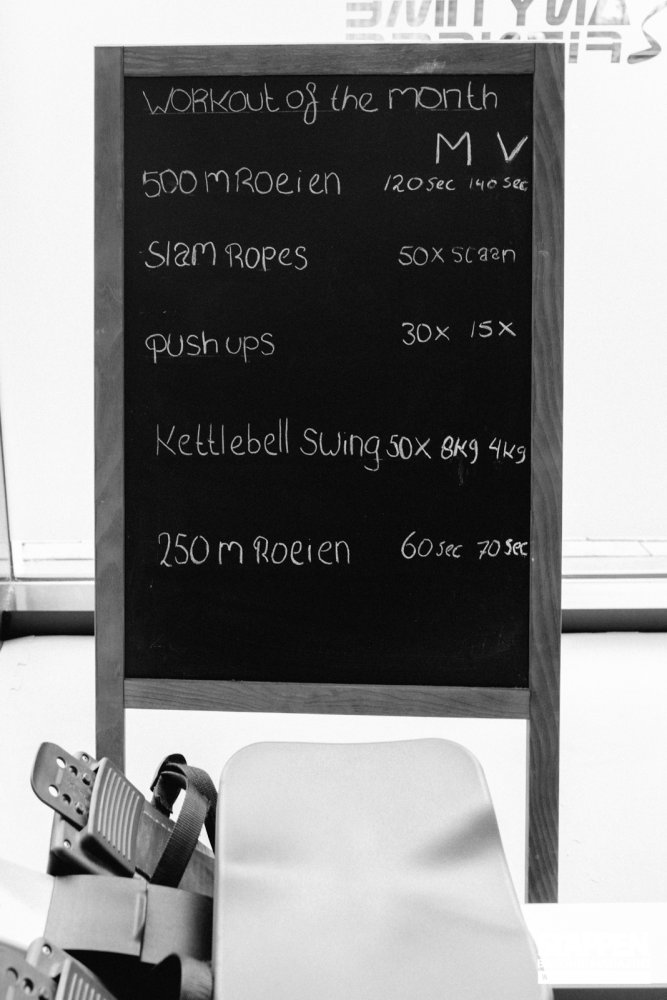 ANYTIME
FITNESS
WORKOUT of the month
M V
500 m Roeien 120 sec 140 sec
Slam Ropes 50x slaan
push ups 30x 15x
Kettlebell Swing 50x 8kg 4kg
250 m Roeien 60 sec 70 sec